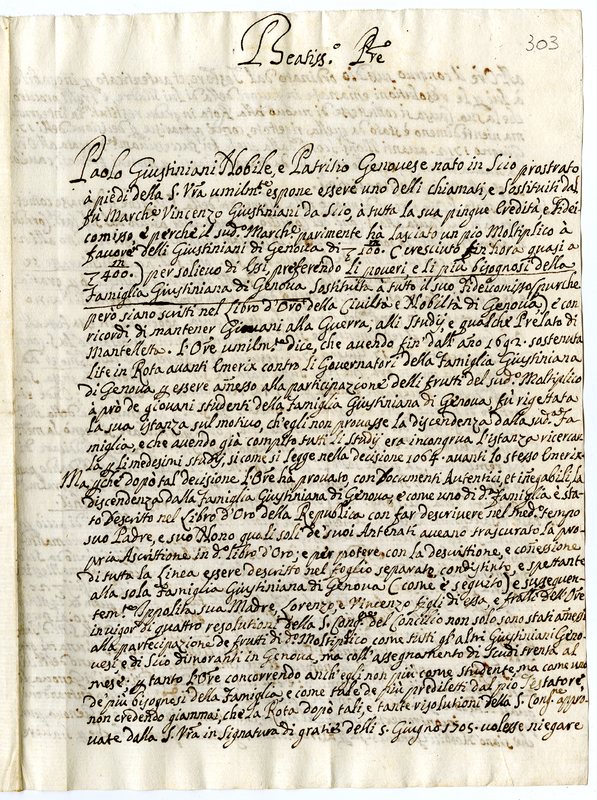 303
Beatiss.º Pre
Paolo Giustiniani Nobile, e Patritio Genovese nato in Scio prostrato
à piedi della S. Vra umilm.te espone essere uno delli chiamati, e Sostituiti dal
fù March.e Vincenzo Giustiniani da Scio, à tutta la sua pingue Eredità, e Fidei-
comisso, e perche il sud.º March.e parimente hà lasciato un pio Moltiplico à
favore delli Giustiniani di Genova di 100. (cresciuto fin hora quasi a
400.) per solievo di Essi, preferendo Li poveri, e Li più bisognosi della
Famiglia Giustiniana di Genova Sostituita à tutto il suo Fideicomisso (purche
però siano scritti nel Libro d'Oro della Civiltà e Nobiltà di Genova) e con
ricordi di mantener Giovani alla Guerra, alli Studij, e qualche Prelato di
Mantelletta. L'Ore umilm.te dice, che avendo fin dall'año 1692. sostenuta
Lite in Rota avanti Emerix contro Li Governatori della Famiglia Giustiniana
di Genova, p essere am̃esso alla participazione delli frutti del sud.º Moltiplico
à prò de giovani studenti della Famiglia Giustiniana di Genova fù rigettata
la sua istanza sul motivo, ch'egli non provasse la discendenza dalla sud.a Fa-
miglia, e che avendo già compito tutti Li Studij era incongrua L'istanza ricercar-
la p Li medesimi studij, si come si legge nella decisione 1064. avanti lo stesso Emerix
Ma, perche dopo tal decisione L'Ore hà provato, con Documenti Autentici, et inegabili La
Discendenza dalla Famiglia Giustiniana di Genova, e come uno di d.a Famiglia è sta-
to Descritto nel Libro d'Oro della Republica con far descrivere nel med.º tempo
suo Padre, e suo Nono quali soli de suoi Antenati aveano trascurato la pro-
pria Ascrittione in d.º Libro d'Oro; e per potere, con la descrittione, e conessione
di tutta la Linea essere descritto nel Foglio separato, condistinto, e spetante
alla sola Famiglia Giustiniana di Genova (come è seguito) e susseguen-
tem.te Ippolita sua Madre, Lorenzo, e Vincenzo figli di essa, e fratelli dell'Ore
in vigor di quattro resolutioni della S. Cong.ne del Concilio non solo sono stati am̃essi
alla partecipazione de frutti di d.º Moltiplico come tutti gl'altri Giustiniani Geno-
vesi e di Scio dimoranti in Genova, ma coll'assegnamento di scudi trenta al
mese: p tanto L'Ore concorrendo anch'egli non più come studente, ma come uno
de più bisognosi della Famiglia, e come tale de più prediletti dal pio Testatore,
non credendo giammai, che La Rota dopò tali, e tante risolutioni della S. Cong.ne appro-
vate dalla S. Vra in Signatura di gratie delli 5. Giugno 1705. volesse niegare